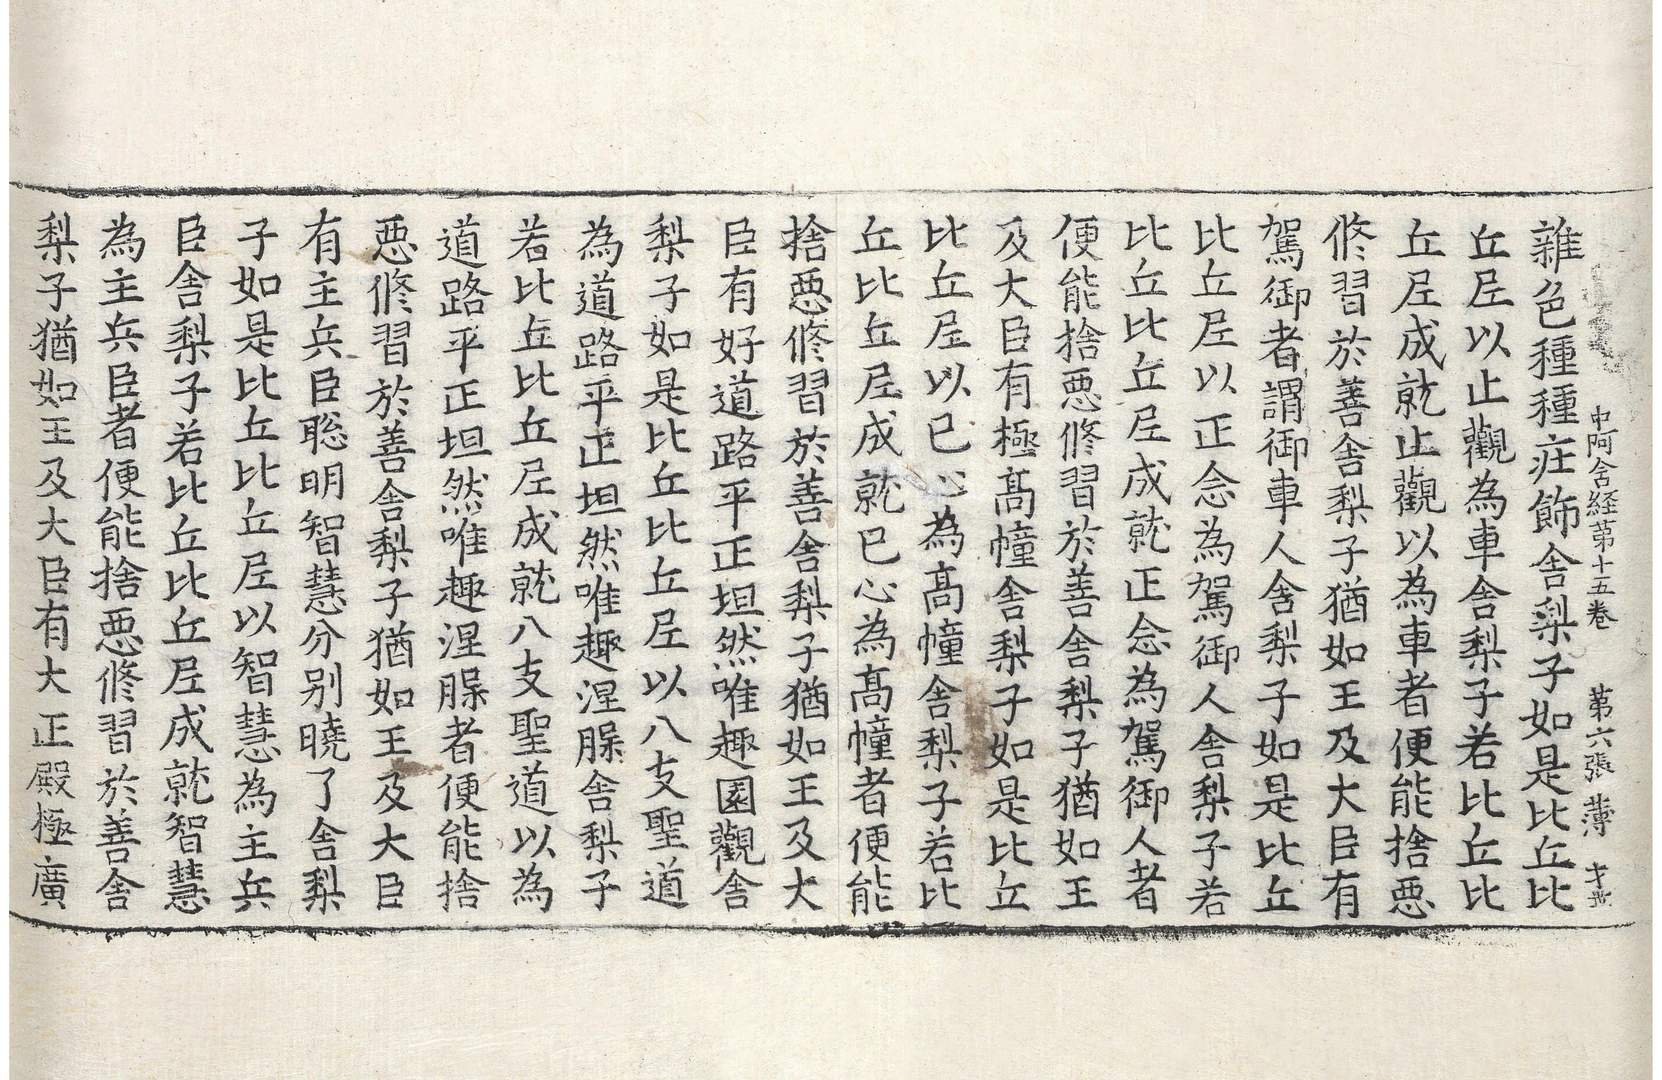 中阿含経第十五巻 第六張 薄
雜色種種庄飾舍梨子如是比丘比
丘𡰱以止觀為車舍梨子若比丘比
丘𡰱成就止觀以為車者便能捨悪
修習於善舍梨子猶如王及大臣有
駕御者謂御車人舍梨子如是比丘
比丘𡰱以正念為駕御人舍梨子若
比丘比丘𡰱成就正念為駕御人者
便能捨悪修習於善舍梨子猶如王
及大臣有極髙幢舍梨子如是比丘
比丘𡰱以已心為髙幢舍梨子若比
丘比丘𡰱成就已心為髙幢者便能
捨悪修習於善舍梨子猶如王及大
臣有好道路平正坦然唯趣園觀舍
梨子如是比丘比丘𡰱以八支聖道
為道路平正坦然唯趣涅㬼舍梨子
若比丘比丘𡰱成就八支聖道以為
道路平正坦然唯趣涅㬼者便能捨
悪修習於善舍梨子猶如王及大臣
有主兵臣聡明智慧分別曉了舍梨
子如是比丘比丘𡰱以智慧為主兵
臣舍梨子若比丘比丘𡰱成就智慧
為主兵臣者便能捨悪修習於善舍
梨子猶如王及大臣有大正殿極廣